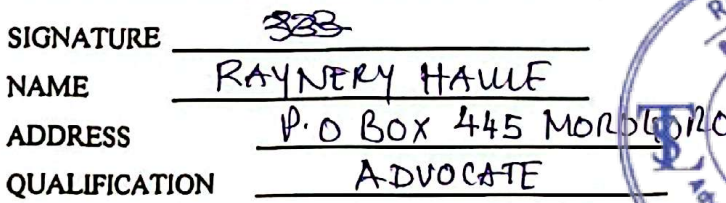 SIGNATURE
NAME RAYNERY HAULE
ADDRESS P.O BOX 445 MOROGORO
QUALIFICATION ADVOCATE